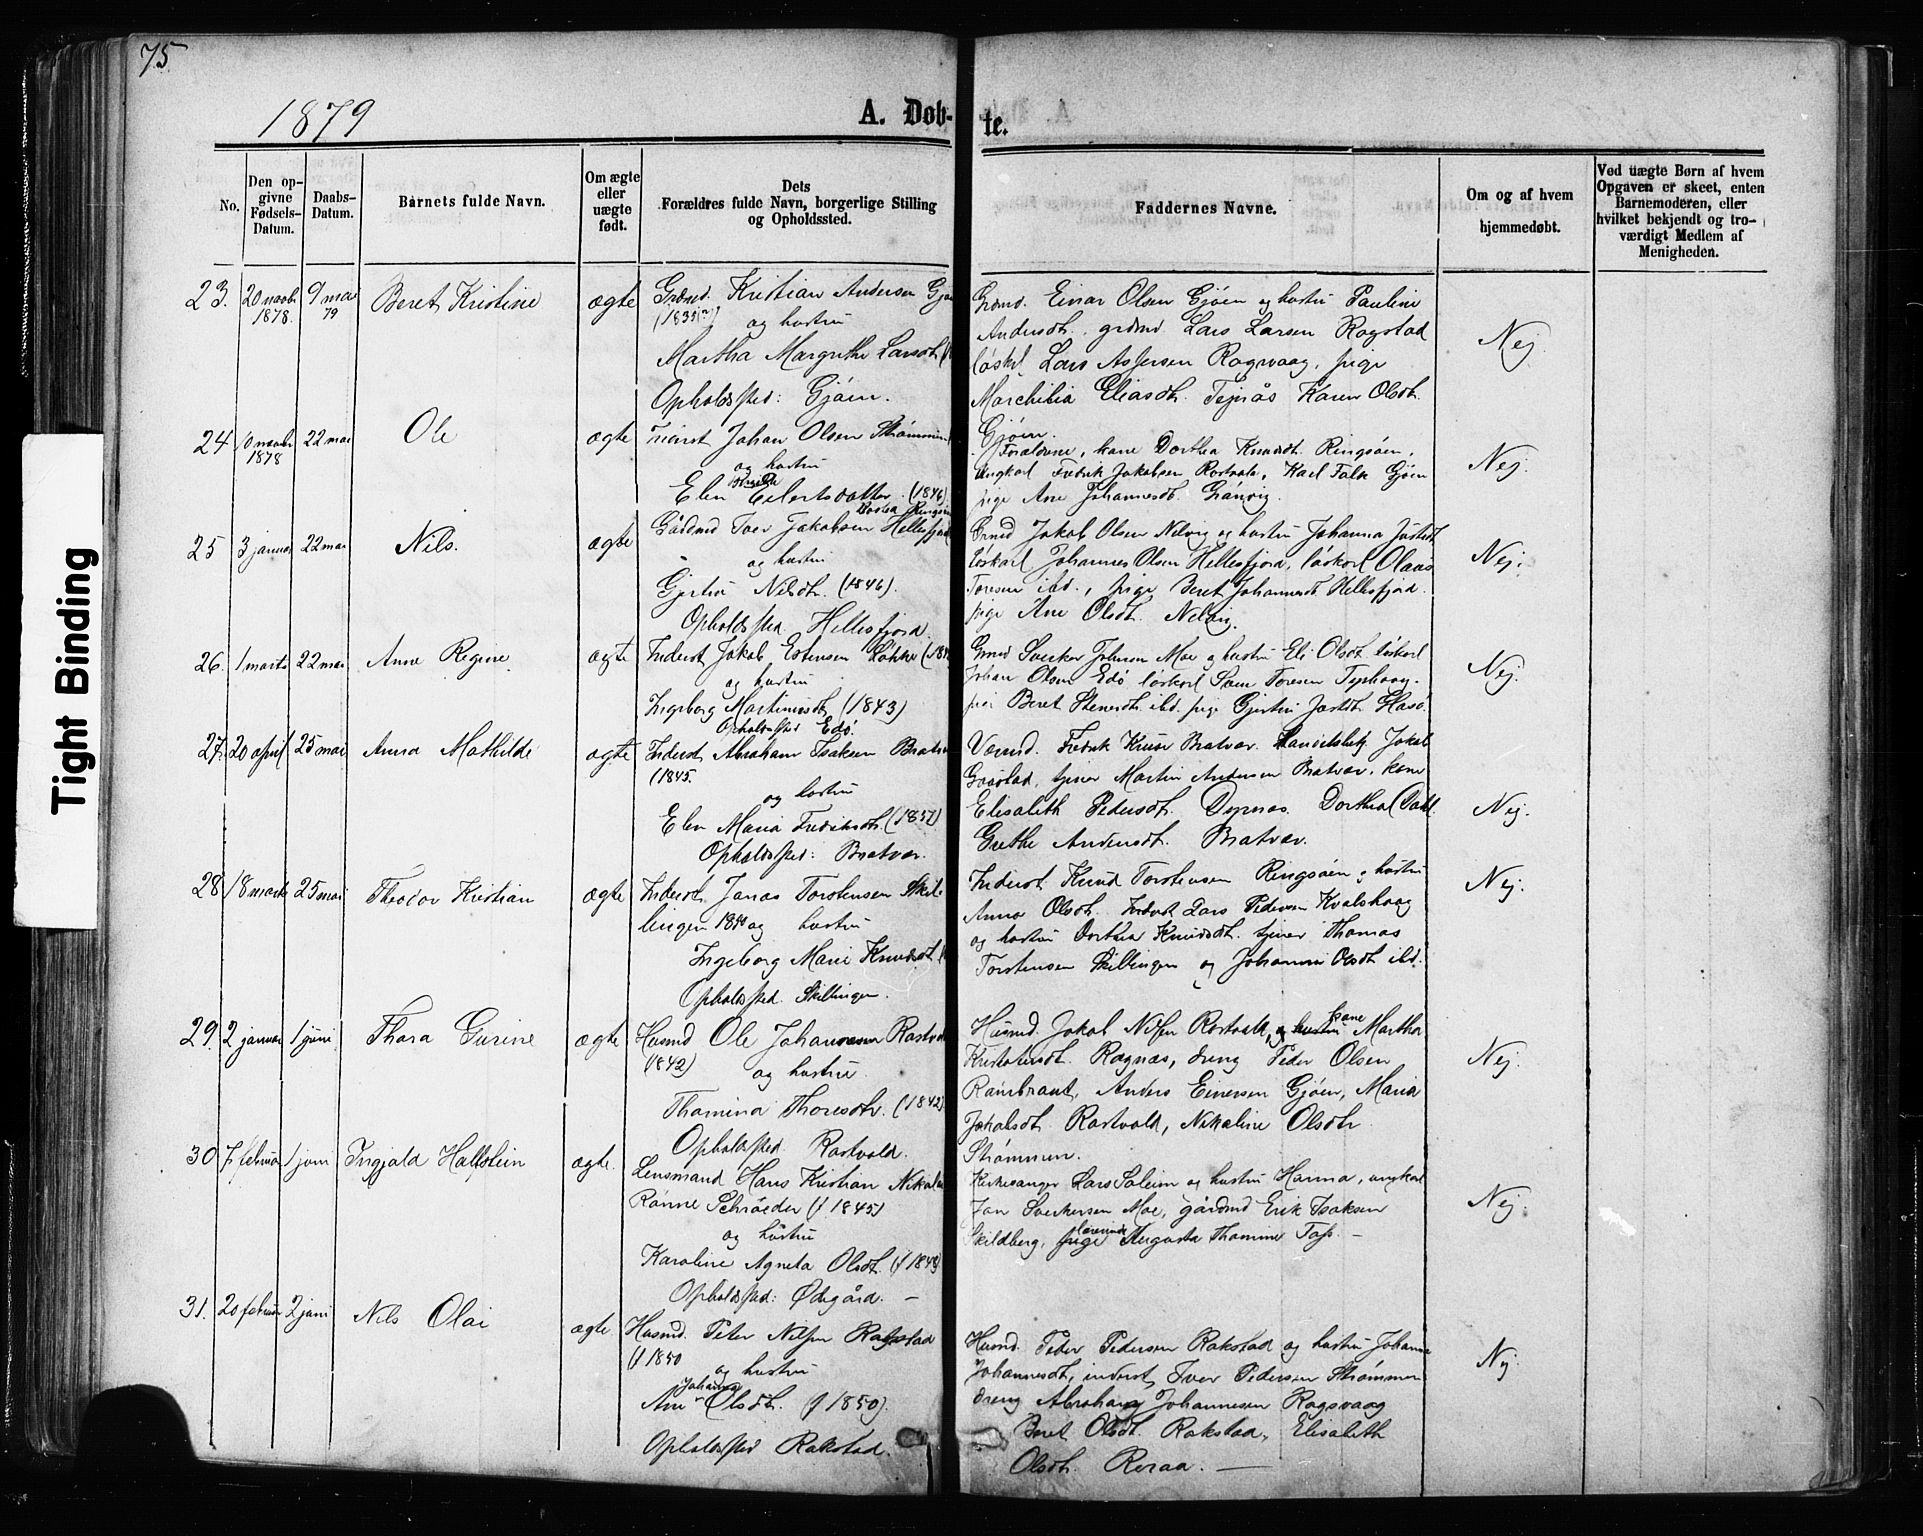 75
1879
A. Døb-
te.
No.
Den op-
givne
Fødsels-
Datum.
Daabs-
Datum.
Barnets fulde Navn.
Om ægte
eller
uægte
født.
Dets
Forældres fulde Navn, borgerlige Stilling
og Opholdssted.
Faddernes Navne.
Om og af hvem
hjemmedøbt.
Ved uægte Børn af hvem
Opgaven er skeet, enten
Barnemoderen, eller
hvilket bekjendt og tro-
værdigt Medlem af
Menigheden.
23. 20 novbr 1878. 9 mai 79 Beret Kristine ægte
Grdmd. Kristian Andersen
og hustru
Martha Margrethe Larsdt.
Opholdssted: Gjöen.
Grdmd. Einar Olsen Gjöen og hustru Pauline
Andersdt. grdmd. Lars Larsen Rogstad
löskl. Lars Rogsvaag, pige
Eliasdt. Karen Olsdt.
Gjöen.
Nej.
24 10 novbr 1878 22 mai Ole ægte
Inderst Johan Olsen Strömmen
og hustru
Elen Eilertsdatter. (1846)
Forældrene, kone Dorthea Knudsdt. Ringsöen,
ungkarl Fredrik Jakobsen Rostvold, Karl Falk Gjöen
pige Ane Johannesdt.
Nej.
25 3 januar 22 mai Nils. ægte
Gårdmd Jakobsen Hellesfjord
og hustru
Nilsdt. (1846).
Opholdssted. Hellesfjord.
Grmd Jakob Olsen Nelvig og hustru Johanna
löskarl Johannes Olsen Hellesfjord, löskarl Olaus
Toresen ibd., pige Beret Johannesdt. Hellesfjord.
pige Ane Olsdt. Nelvig.
Nej.
26. 1 marts 22 mai Anne Regine. ægte
Inderst Jakob Estensen Løkke
og hustru
Ingeborg Martinusdt. (1843)
Opholdssted Edö.
Grmd Sverker Johnsen Moe og hustru Eli Olsdt. löskarl
Johan Olsen Edö löskarl Toresen
pige Beret Stenersdt. ibd. pige Gjertru
Nej.
27. 20 april 25 mai Anna Mathilde ægte
Inderst Abraham Isaksen Bratvær
(1845.
og hustru
Elen Maria Fredriksdt. (1857)
Opholdssted: Bratvær.
Fredrik Knutz Bratvær. Handelsbetj. Jakob
tjener Martin Andersen Bratvær. kone
Elisabeth Pedersdt. Dyrnæs. Dorthea Dahl
Grethe Andersdt. Bratvær.
Nej.
28 18 marts 25 mai Theodor Kristian ægte
Inderst Jonas Torstensen Skil-
lingen 1850 og hustru
Ingeborg Marie Knudsdt.
Opholdssted. Skillingen.
Inderst. Knud Torstensen Ringsöen og hustru
Anna Olsdt. Inderst Lars Pedersen Kvalshaug
og hustru Dorthea Knudsdt. tjener Thomas
Torstensen Skillingen og Johanna Olsdt ibd.
Nej.
29. 2 januar 1 juni Thora Gurine ægte
Husmd Ole Johannesen Rostvold
(1842)
og hustru.
Thamina Thoresdt. (1842).
Opholdssted. Rostvold.
Husmd. Jakob Nilsen Rostvold, kone Martha
Kristofersdt. Rognæs, dreng Peder Olsen
Anders Einersen Gjöen, Maria
Jakobsdt. Rostvold, Nikoline Olsdt.
Strömmen.
Nej.
30 7 februar 1 juni Ingjald Hallstein ægte.
Lensmand Hans Kristian Nikolai
Rønne Schröeder (f 1845)
og hustru
Karoline Agneta Olsdt. (f 1848)
Opholdssted: Ødegård. —
Kirkesanger Lars Soleim og hustru Hanna, ungkarl
Jan Sverkersen Moe, gårdmd Erik Isaksen
Skildberg, pige Augusta Thomine —
Nej.
31. 20 februar 2 juni Nils Olai ægte
Husmd. Peter Nilsen Rakstad
(f 1850
og hustru
Johanna
Ane Olsdt. (f 1850).
Opholdssted Rakstad.
Husmd. Peder Pedersen Rakstad og hustru Johanna
Johannesdt, inderst, Iver Pedersen Strömmen
dreng Abraham Johannesen Rogsvaag
Beret Olsdt. Rakstad, Elisabeth
Olsdt. —
Nej.
Tight Binding